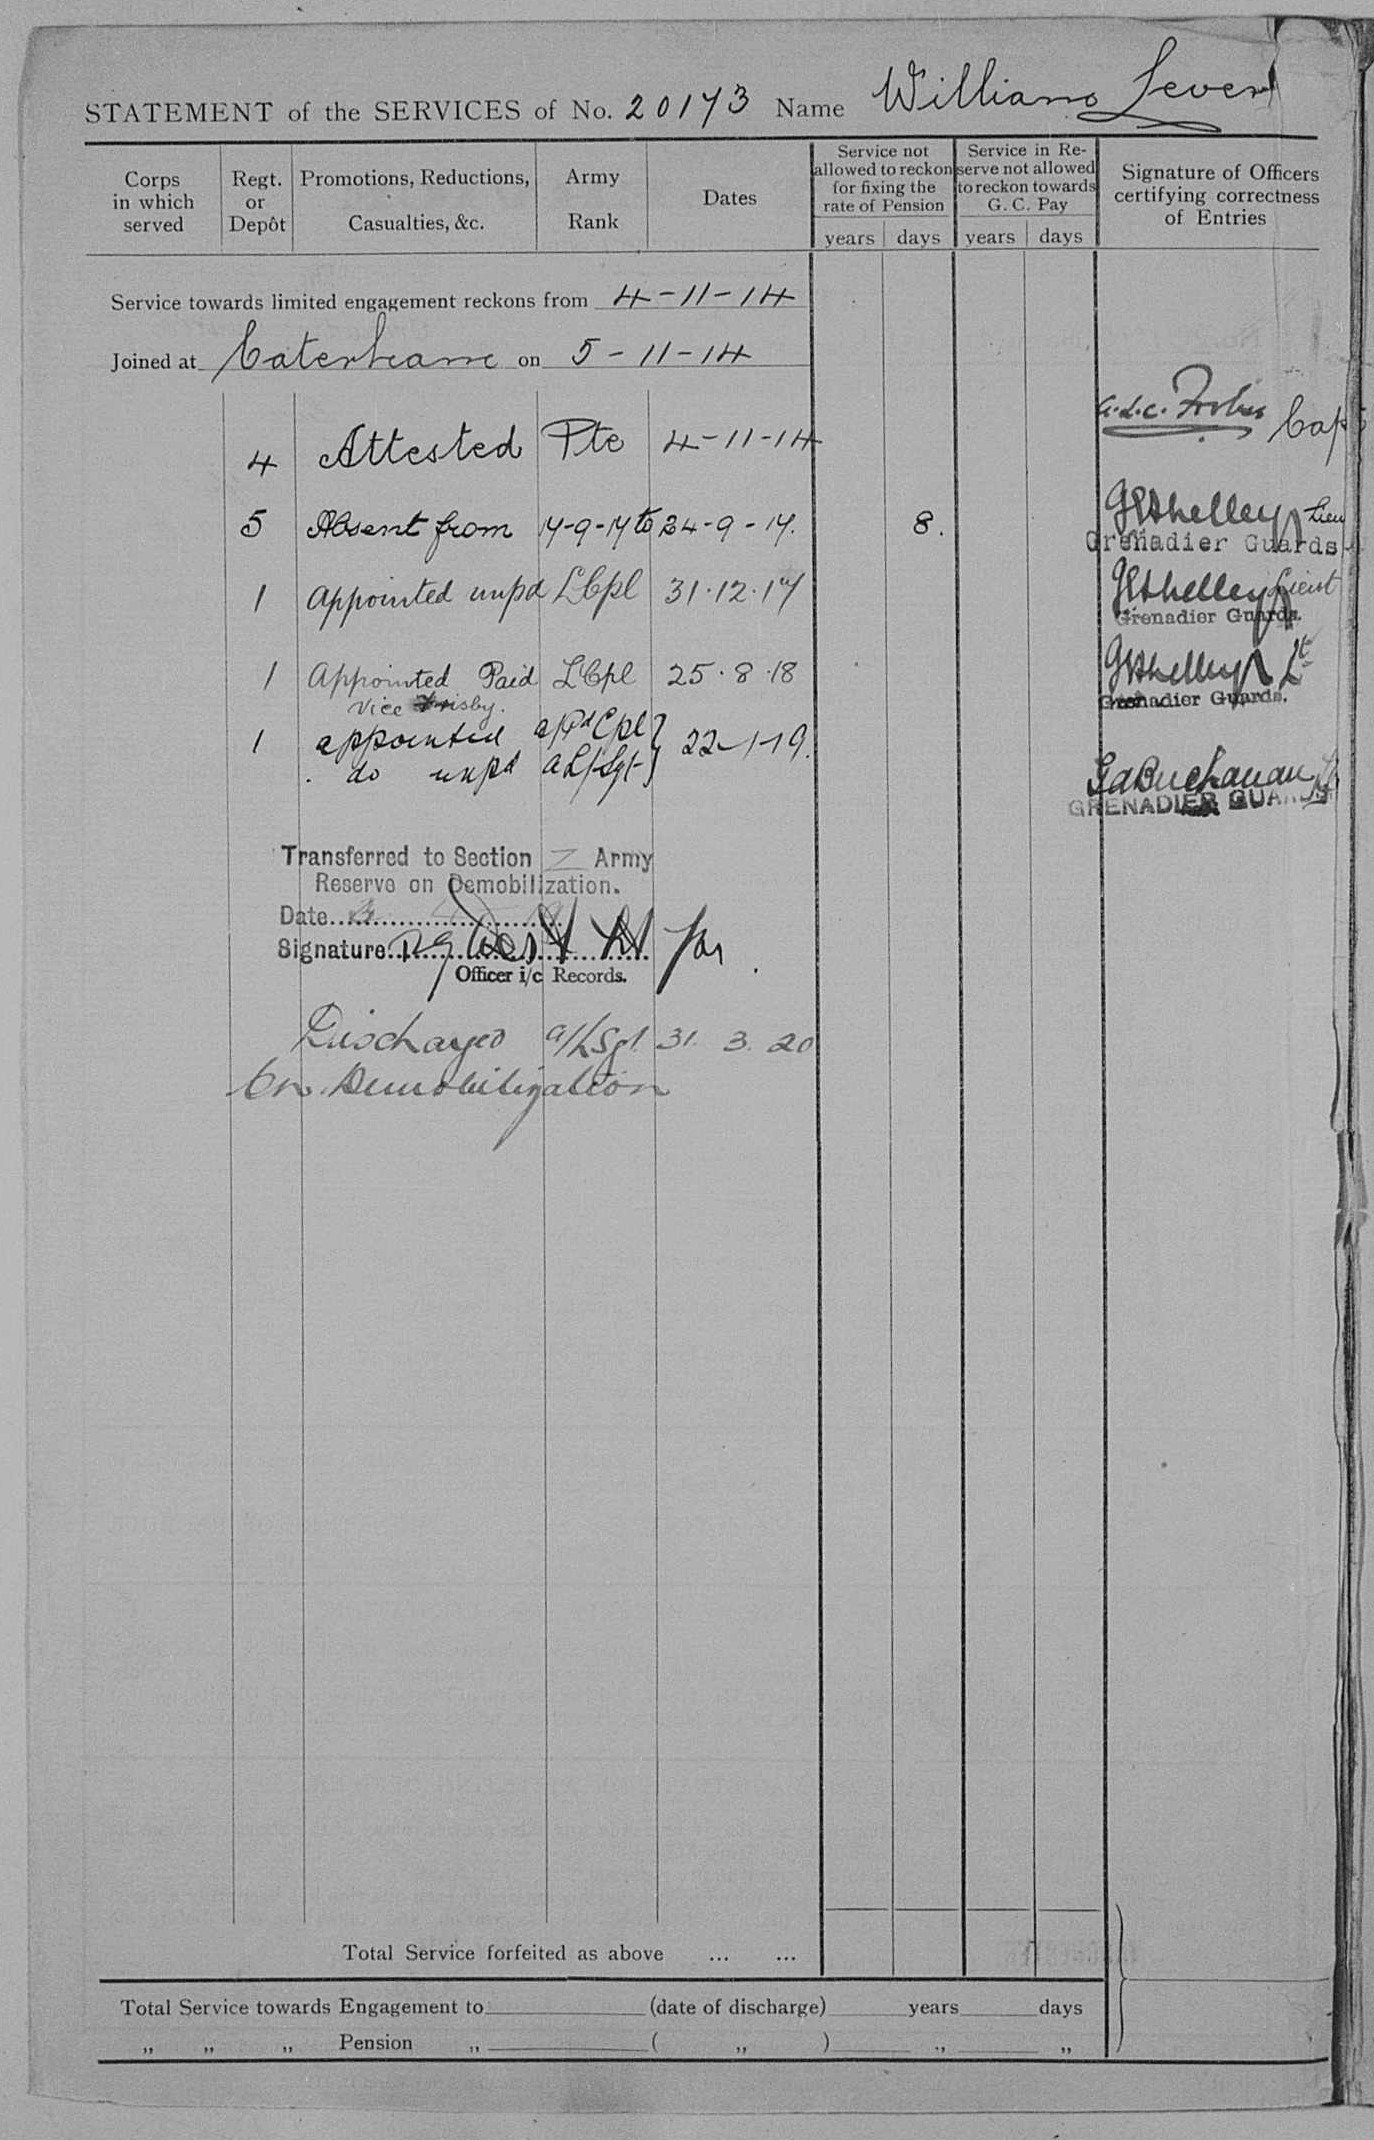 STATEMENT of the SERVICES of No. 20173 Name William Lever
Corps in which served
Regt. or Depôt
Promotions, Reductions, Casualties, &c.
Army Rank
Dates
Service not allowed to reckon for fixing the rate of Pension
years days
Service in Reserve not allowed to reckon towards G. C. Pay
years days
Signature of Officers certifying correctness of Entries
Service towards limited engagement reckons from 4-11-14
Joined at Caterham on 5-11-14
4 Attested Pte 4-11-14 Capt
5 Absent from 17-9-17 to 24-9-17. 8. GEShelley Lieu
Grenadier Guards
1 Appointed unpd LCpl 31.12.17 GEShelley Lieut
Grenadier Guards.
1 Appointed Paid LCpl 25.8.18 GEShelley Lt
Vice Frisby. Grenadier Guards.
1 appointed a/Pd Cpl } 22-1-19.
. do unpd a L/Sgt } Buchanan
GRENADIER GUARDS
Transferred to Section Z Army
Reserve on Demobilization.
Date
Signature West Lt for
Officer i/c Records.
Discharged a/LSgt 31. 3. 20
On Demobilization
Total Service forfeited as above ... ...
Total Service towards Engagement to (date of discharge) years days
„ „ „ Pension „ ( „ ) „ „